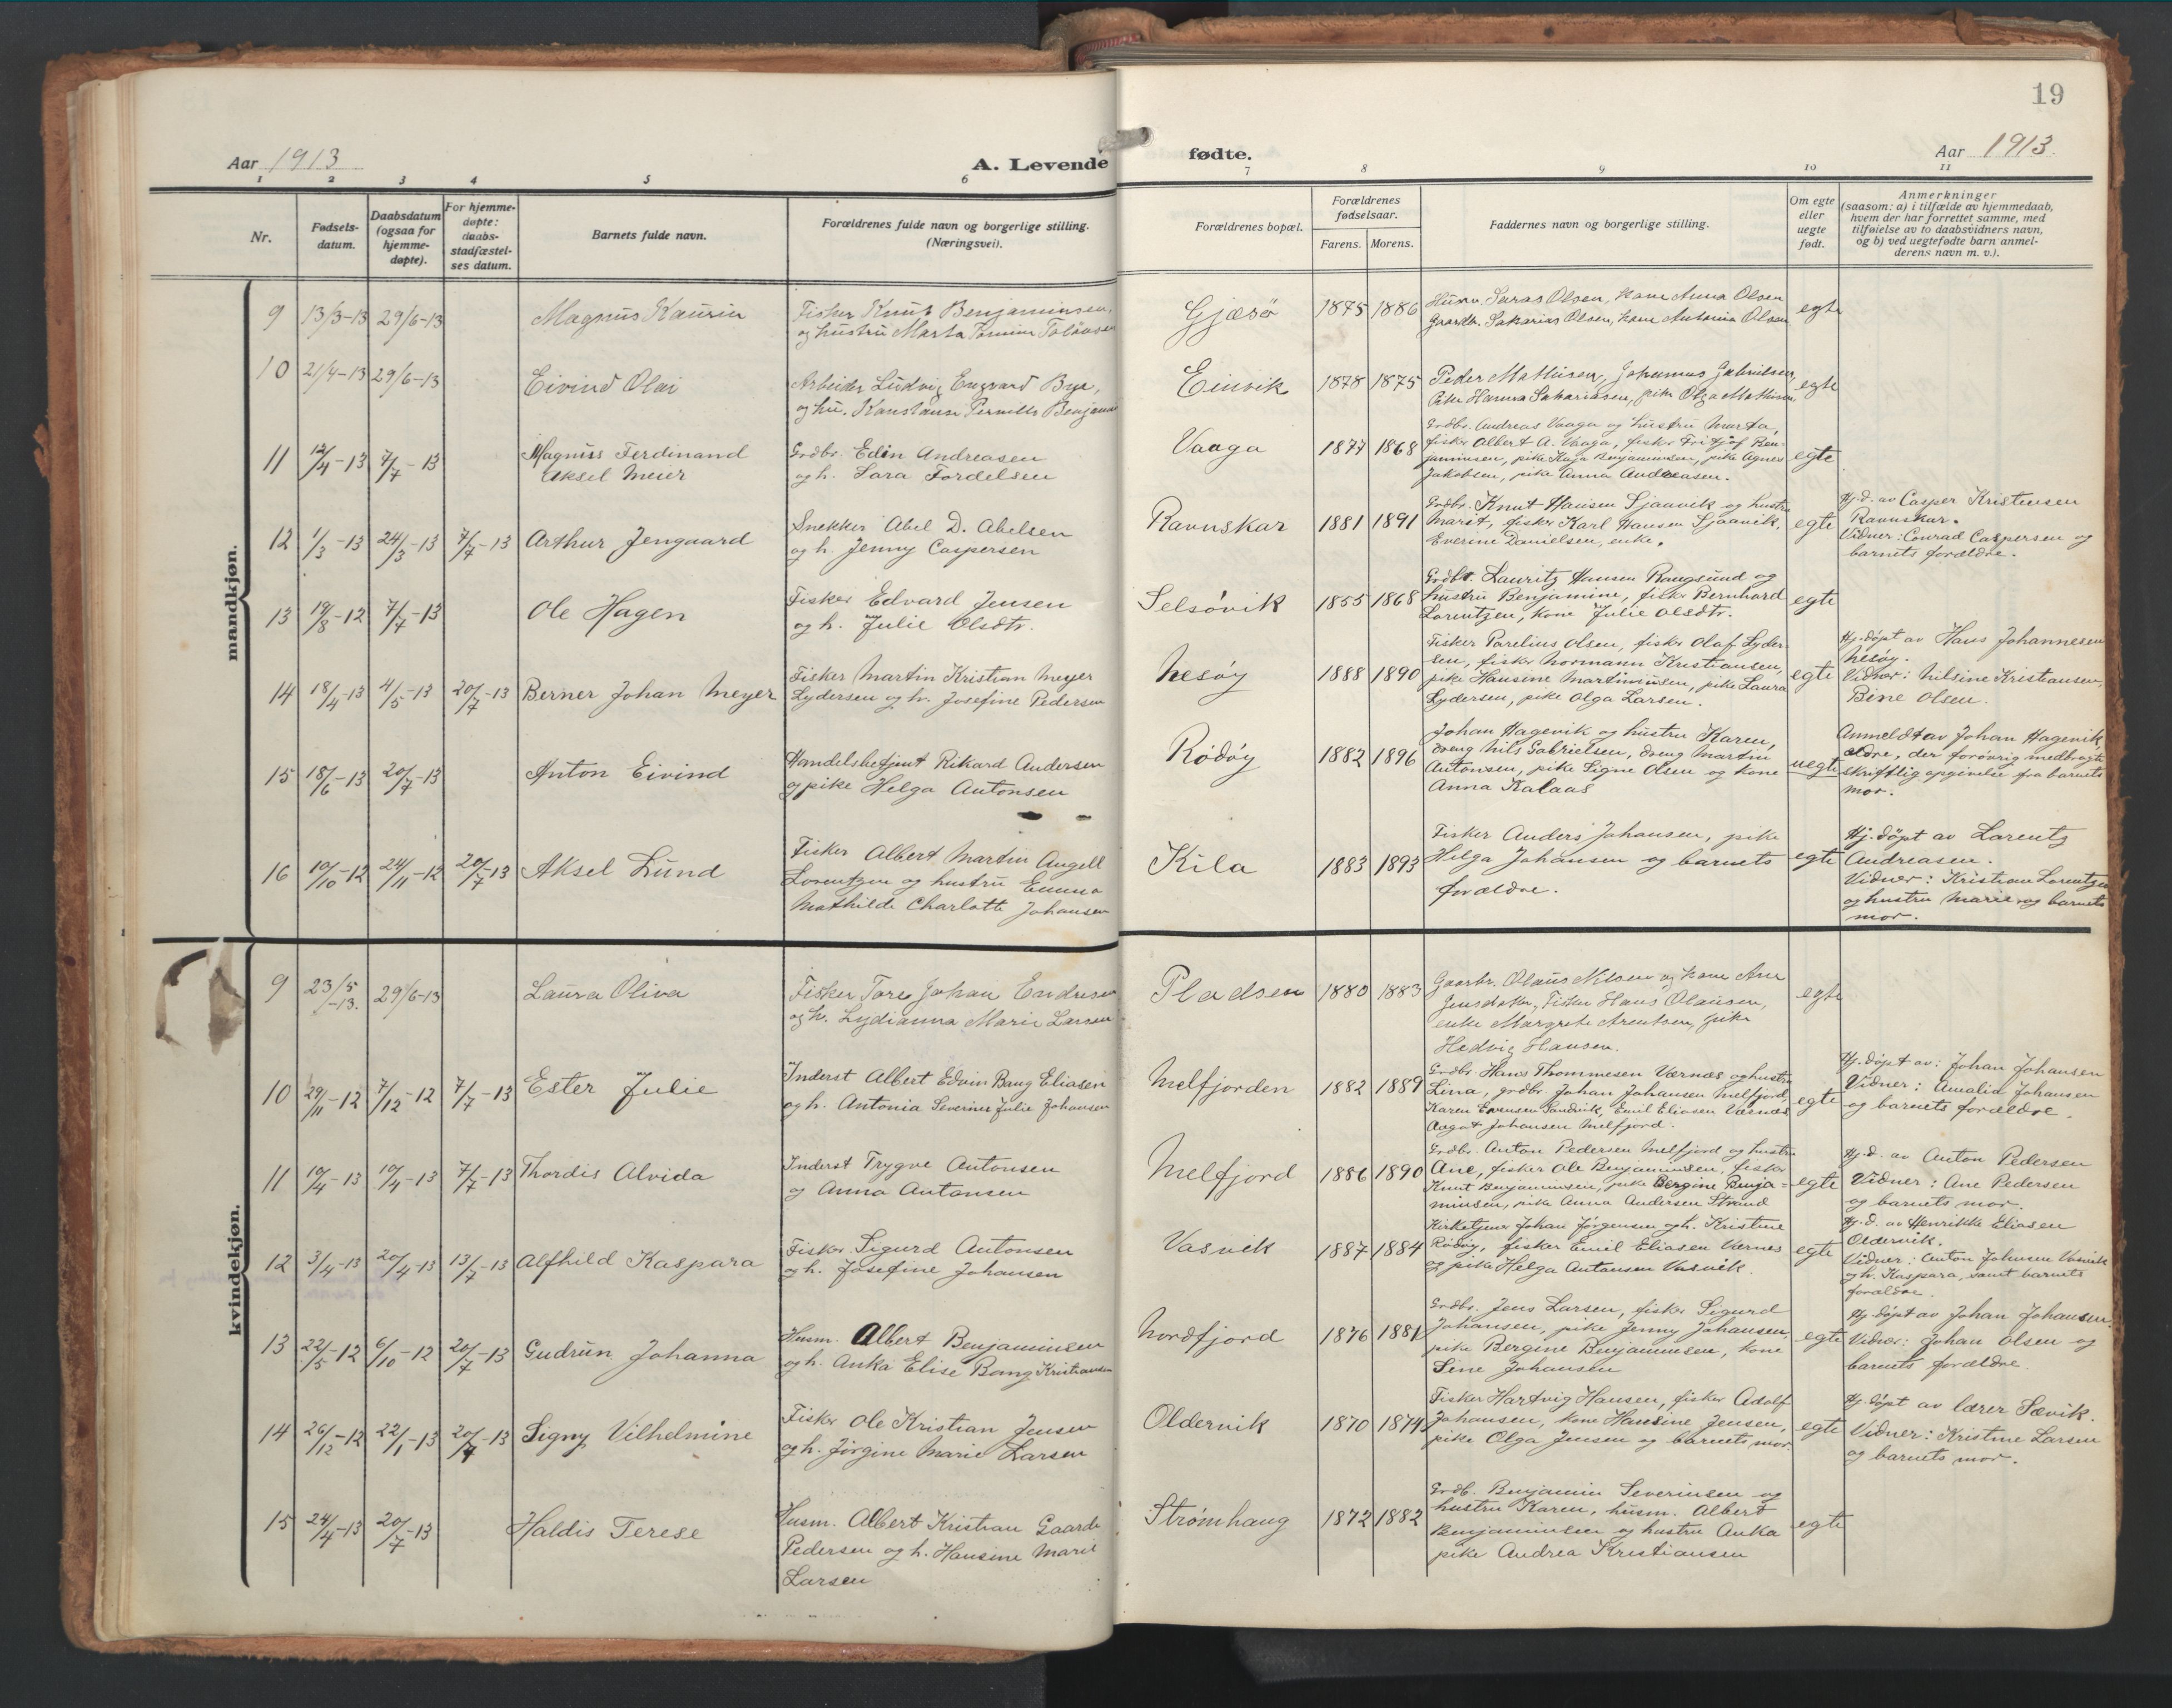 19
Aar 1913
A. Levende
fødte.
Aar 1913.
1 2 3 4 5 6 7 8 9 10 11
Nr.
Fødsels-
datum.
Daabsdatum
(ogsaa for
hjemme-
døpte).
For hjemme-
døpte:
daabs-
stadfæstel-
ses datum.
Barnets fulde navn.
Forældrenes fulde navn og borgerlige stilling.
(Næringsvei).
Forældrenes bopæl.
Forældrenes
fødselsaar.
Farens. Morens.
Faddernes navn og borgerlige stilling.
Om egte
eller
uegte
født.
Anmerkninger
(saasom: a) i tilfælde av hjemmedaab,
hvem der har forrettet samme, med
tilføielse av to daabsvidners navn,
og b) ved uegtefødte barn anmel-
derens navn m. v.).
mandkjøn.
9 13/3-13 29/6-13 Magnus Kaurin
Fisker Knut Benjaminsen,
og hustru Marta
Gjæsø 1875 1886
Husm. Olsen, kone Anna Olsen
Gaardbr. Sakarias Olsen, kone Antonia Olsen
egte
10 21/4-13 29/6-13 Eivind Olai
Arbeider Ludvig Engvard Bye,
og hu. Pernille
Einvik 1878 1875
Peder Mathisen, Johannes Gabrielsen,
Pike Hanna Sakariasen, pike Olga Mathisen,
egte
11 12/4-13 7/7-13 Magnus Ferdinand
Aksel Meier
Grdbr. Edin Andreasen
og h. Sara Fordelsen
Vaaga 1877 1868
Grdbr. Andreas Vaaga og hustru Marta,
fisker Albert A. Vaaga, fisker Fritjof Ben-
jaminsen, pike Kaja Benjaminsen, pike Agnes
Jakobsen, pike Anna Andreasen.
egte
12 1/3-13 24/3-13 7/7-13 Arthur Jengaard
Snekker Abel D. Abelsen
og h. Jenny Caspersen
Ravnskar 1881 1891
Grdbr. Knut Hansen Sjaavik og hustru
Marit, fisker Karl Hansen Sjaavik,
Everine Danielsen, enke.
egte
Hj.d. av Casper Kristensen
Ravnskar.
Vidner: Conrad Caspersen og
barnets forældre.
13 19/8-12 7/7-13 Ole Hagen
Fisker Edvard Jensen
og h. Julie Olsdtr.
Selsøvik 1855 1868
Grdbr. Lauritz Hansen Rangsund og
hustru Benjamine, fisker Bernhard
Lorentzen, kone Julie Olsdtr.
egte
14 18/4-13 4/5-13 20/7-13 Berner Johan Meyer
Fisker Martin Kristian Meyer
Lydersen og h. Josefine Pedersen
Nesøy 1888 1890
Fisker Parelius Olsen, fisker Olaf Lyder-
sen, fisker Normann Kristiansen,
pike Hansine Martinusen, pike Laura
Lydersen, pike Olga Larsen.
egte
Hj.døpt av Hans Johannesen
Nesøy.
Vidner: Nilsine Kristiansen,
Bine Olsen.
15 18/6-13 20/7-13 Anton Eivind
Handelsbetjent Rikard Andersen
og pike Helga Antonsen
Rødøy 1882 1896
Johan Hagevik og hustru Karen,
dreng Nils Gabrielsen, dreng Martin
Antonsen, pike Signe Olsen og kone
Anna Kalaas
uegte
Anmeldt av Johan Hagevik,
ældre, der forøvrig medbragte
skriftlig opgivelse fra barnets
mor.
16 19/10-12 24/11-12 20/7-13 Aksel Lund
Fisker Albert Martin Angell
Lorentzen og hustru Emma
Mathilde Charlotte Johansen
Kila 1883 1893
Fisker Anders Johansen, pike
Helga Johansen og barnets
forældre.
egte
Hj.døpt av Lorentz
Andreasen.
Vidner: Kristian Lorentzen
og hustru Marie og barnets
mor.
kvindekjøn.
9 23/5
-13. 29/6-13 Laura Oliva
Fisker Tore Johan Endresen
og h. Lydianna Marie Larsen
Pladsen 1880 1883
Gaarbr. Olaus Nilsen og kone Ane
Fisker Hans Olausen,
enke Margrete Arentsen, pike
Hedvig Hansen.
egte
10 29/11-12 7/12-12 7/7-13 Ester Julie
Inderst Albert Edvin Bang Eliasen
og h. Antonia Severine Julie Johansen
Melfjorden 1882 1889
Grdbr. Hans Thommesen Værnes og hustru
Lina, grdbr. Johan Johansen Melfjord,
Karen Evensen Sandvik, Emil Eliasen Værnes
Aagot Johansen Melfjord.
egte
Hj.døpt av: Johan Johansen
Vidner: Amalia Johansen
og barnets forældre.
11 19/4-13 19/4-13 7/7-13 Thordis Alvida
Inderst Trygve Antonsen
og Anna Antonsen
Melfjord 1886 1890
Grdbr. Anton Pedersen Melfjord og hustru
Ane, fisker Ole Benjaminsen, fisker
Knut Benjaminsen, pike Bergine Benja-
minsen, pike Anna Andersen Strand
egte
Hj.d. av Anton Pedersen
Vidner: Ane Pedersen
og barnets mor.
12 3/4-13 20/4-13 13/7-13 Alfhild Kaspara
Fisker Sigurd Antonsen
og h. Josefine Johansen
Vasvik 1887 1884
Kirketjener Johan Jørgensen og h. Kristine
Rødøy, fisker Emil Eliasen Værnes
og pike Helga Antonsen Vasvik.
egte
Hj.d. av Henrikke Eliasen
Oldervik.
Vidner: Anton Johnsen Vasvik
og h. Kaspara, samt barnets
forældre.
13 22/5-12 6/10-12 20/7-13 Gudrun Johanna
Husm. Albert Benjaminsen
og h. Anka Elise Bang Kristiansen
Nordfjord 1876 1881
Grdbr. Jens Larsen, fisker Sigurd
Johansen, pike Jenny Johansen,
pike Bergine Benjaminsen, kone
Sine Johansen
egte
Hj.døpt av Johan Johansen.
Vidner: Johan Olsen og
barnets forældre.
14 26/12-12 22/1-13 20/7-13 Signy Vilhelmine
Fisker Ole Kristian Jensen
og h. Jørgine Marie Larsen
Oldervik 1870 1874
Fisker Hartvig Hansen, fisker Adolf
Johansen, kone Hansine Jensen,
pike Olga Jensen og barnets mor
egte
Hj.døpt av lærer Sævik.
Vidner: Kristine Larsen
og barnets mor.
15 24/4-13 20/7-13 Haldis Terese
Husm. Albert Kristian Gaarde
Pedersen og h. Hansine Marie
Larsen
Strømhaug 1872 1882
Grdb. Benjamin Severinsen og
hustru Karen, husm. Albert
Benjaminsen og hustru Anka
pike Andrea Kristiansen
egte